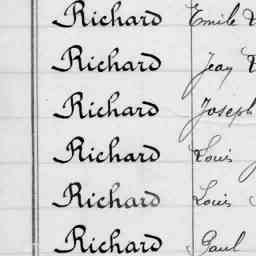 Richard Emile
Richard Jean
Richard Joseph
Richard Louis
Richard Louis
Richard Paul